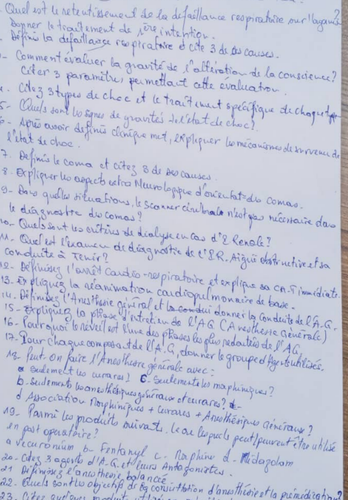 Quel est le retentissement de la défaillance respiratoire sur l'organisme?
Donner le traitement de 1ère intention.
Définis la défaillance respiratoire et cite 3 de ses causes.
Comment évaluer la gravité de l'altération de la conscience?
Citer 3 paramètres permettant cette évaluation.
4. Citez 3 types de choc et le traitement spécifique de chaque type
5. Quels sont les signes de gravités de l'état de choc?
6. Après avoir définis cliniquement, expliquer les mécanismes de survenue de
l'état de choc.
7. Définis le coma et citez 3 de ses causes.
8. Expliquer les aspects extra Neurologique d'orientat° du comas.
9. Dans quelles situations, le scanner cérébral n'est pas nécessaire dans
le diagnostic du comas?
10. Quels sont les critères de dialyse en cas d'I Rénale?
11. Quel est l'examen de diagnostic de l'I.R. Aigüe obstructive et sa
conduite à tenir?
12. Définissez l'arrêt cardio-respiratoire et explique sa immédiate.
13. Expliquez la réanimation cardiopulmonaire de base.
14. Définissez l'Anesthésie général et la conduite de l'A.G.
15. Expliquez la phase d'entretien de l'AG (Anesthésie Générale)
16. Pourquoi le réveil est l'une des phases les plus redoutées de l'AG
17. Pour chaque composant de l'A.G, donner le groupe d' utilisés.
18. Peut-on faire l'Anesthésie générale avec:
a seulement les curares? c. Seulement les morphiniques?
b. Seulement les anesthésiques généraux et curares? d-
d Association Morphiniques + curares + Anesthésiques Généraux?
19. Parmi les produits suivants, le ou lesquels peut/peuvent être utilisé
en post opératoire?
a vecuronium b- Fentanyl c. Morphine d- Midazolam
20. Citez 3 agents d'A.G. et leurs Antagonistes.
21 Définissez l'anesthésie balancée.
22. Quels sont les objectifs de la consultation d'anesthésie et la prémédication?
23. Citez quelques produits